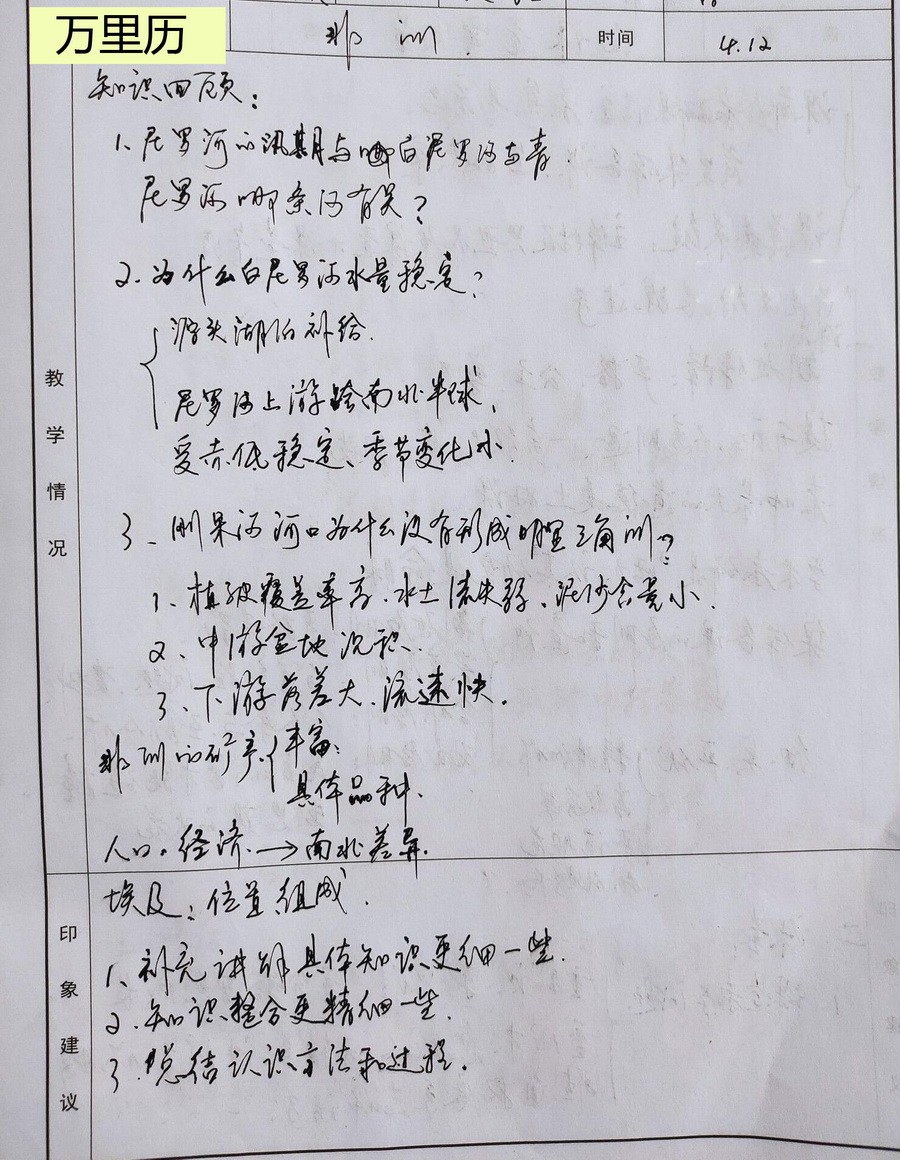 万里历
非洲 时间 4.12
知识回顾：
1、尼罗河的汛期与哪白尼罗河与青
尼罗河哪条河有关？
2、为什么白尼罗河水量稳定？
源头湖泊补给.
尼罗河上游跨南北半球，
受赤低稳定、季节变化小.
3、刚果河河口为什么没有形成明显三角洲？
1、植被覆盖率高、水土流失弱、泥沙含量小.
2、中游盆地沉积.
3、下游落差大、流速快.
非洲的矿产 丰富；
具体品种.
人口、经济 → 南北差异.
教学情况
埃及：位置 组成.
1、补充讲解具体知识更细一些.
2、知识整合更精细一些.
3、总结认识方法和过程.
印象建议